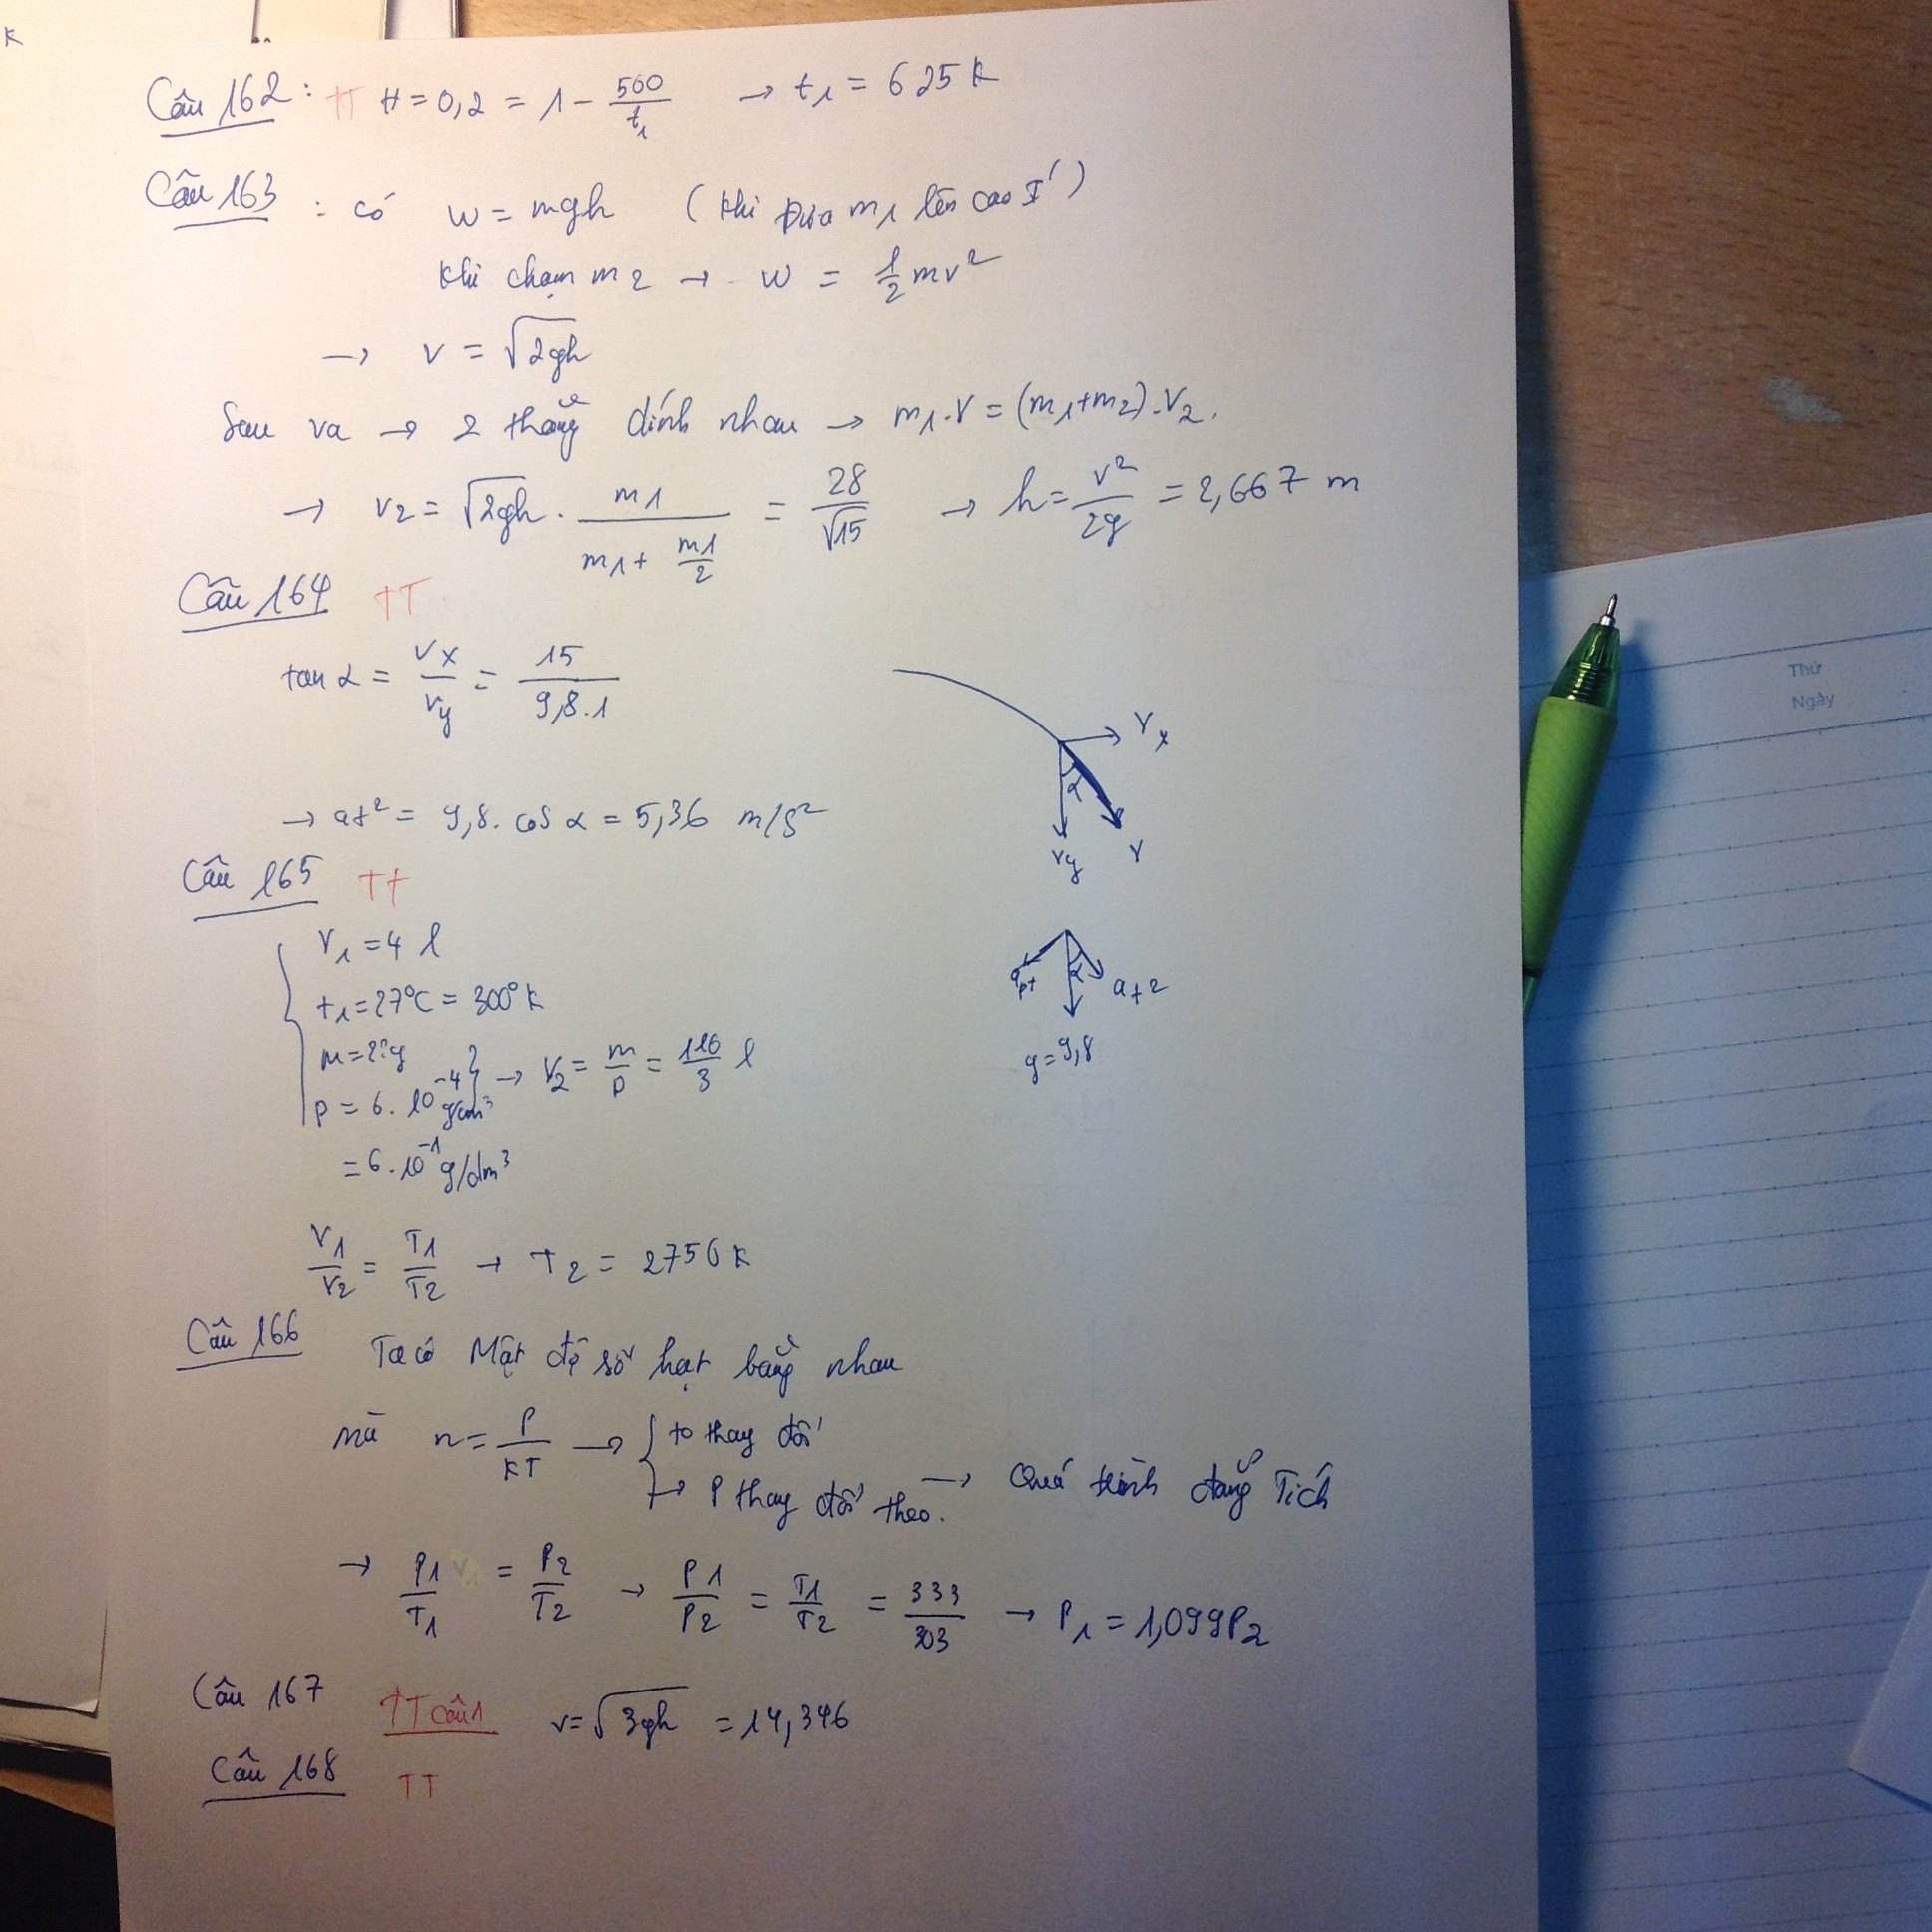 K
Câu 162: TT H = 0,2 = 1 - 500/t₁ → t₁ = 625 K
Câu 163 : có W = mgh (khi đưa m₁ lên cao I')
khi chạm m2 → W = 1/2 mv²
→ v = √2gh
Sau va → 2 thằng dính nhau → m₁.V = (m₁+m₂).V₂.
→ v₂ = √2gh . m1/(m₁ + m1/2) = 28/√15 → h = v²/2g = 2,667 m
Câu 164 TT
tan α = Vx/Vy = 15/9,8.1
Vx
α
Vy
V
→ at² = 9,8. cos α = 5,36 m/s²
Câu 165 TT
V₁ = 4 l
t₁ = 27°C = 300°K
→ V₂ = m/p = 110/3 l
p = 6. 10⁻⁴ g/cm³
= 6. 10⁻¹ g/dm³
apt
α
at2
g = 9,8
V1/V2 = T1/T2 → T2 = 2750 K
Câu 166 Ta có Mật độ số hạt bằng nhau
mà n = P/KT → { to thay đổi
→ P thay đổi theo. → Quá trình đẳng Tích
→ P1/T1 = P2/T2 → P1/P2 = T1/T2 = 333/303 → P₁ = 1,099P₂
Câu 167 TT câu 1 v = √3gh = 14,346
Câu 168 TT
Thứ
Ngày